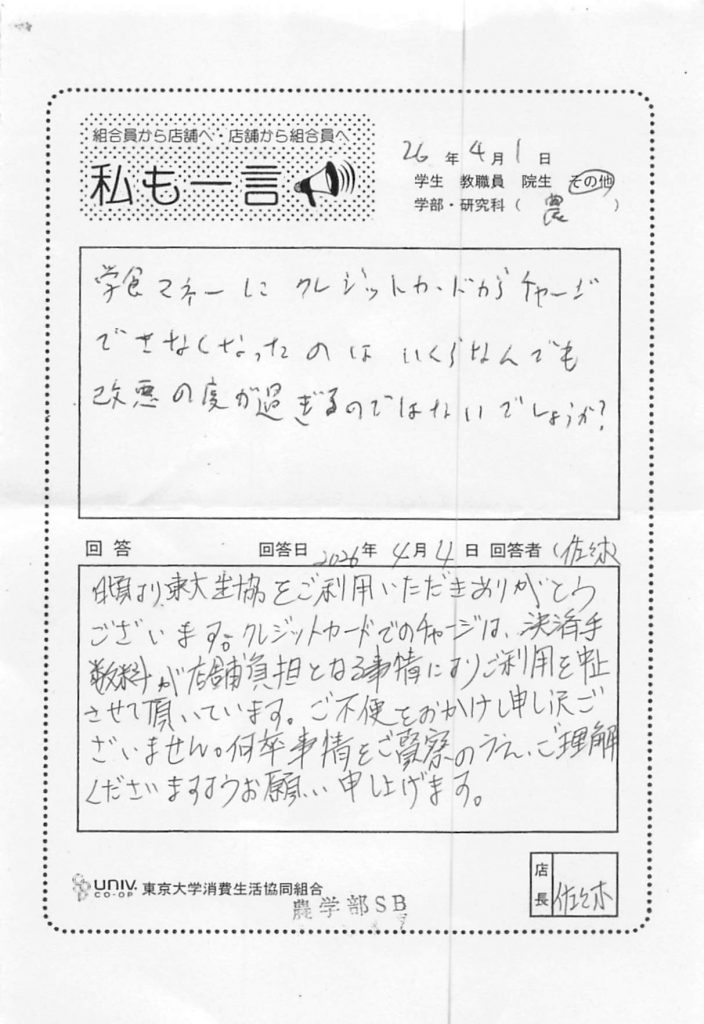 組合員から店舗へ・店舗から組合員へ
私も一言
26年4月1日
学生 教職員 院生 その他
学部・研究科（農）
学食マネーにクレジットカードからチャージ
できなくなったのはいくらなんでも
改悪の度が過ぎるのではないでしょうか？
回答 回答日 2026年4月4日 回答者（佐々木）
日頃より東大生協をご利用いただきありがとう
ございます。クレジットカードでのチャージは、決済手
数料が店舗負担となる事情によりご利用を中止
させて頂いています。ご不便をおかけし申し訳ご
ざいません。何卒事情をご賢察のうえ、ご理解
くださいますようお願い申し上げます。
店長 佐々木
UNIV. CO-OP 東京大学消費生活協同組合
農学部SB